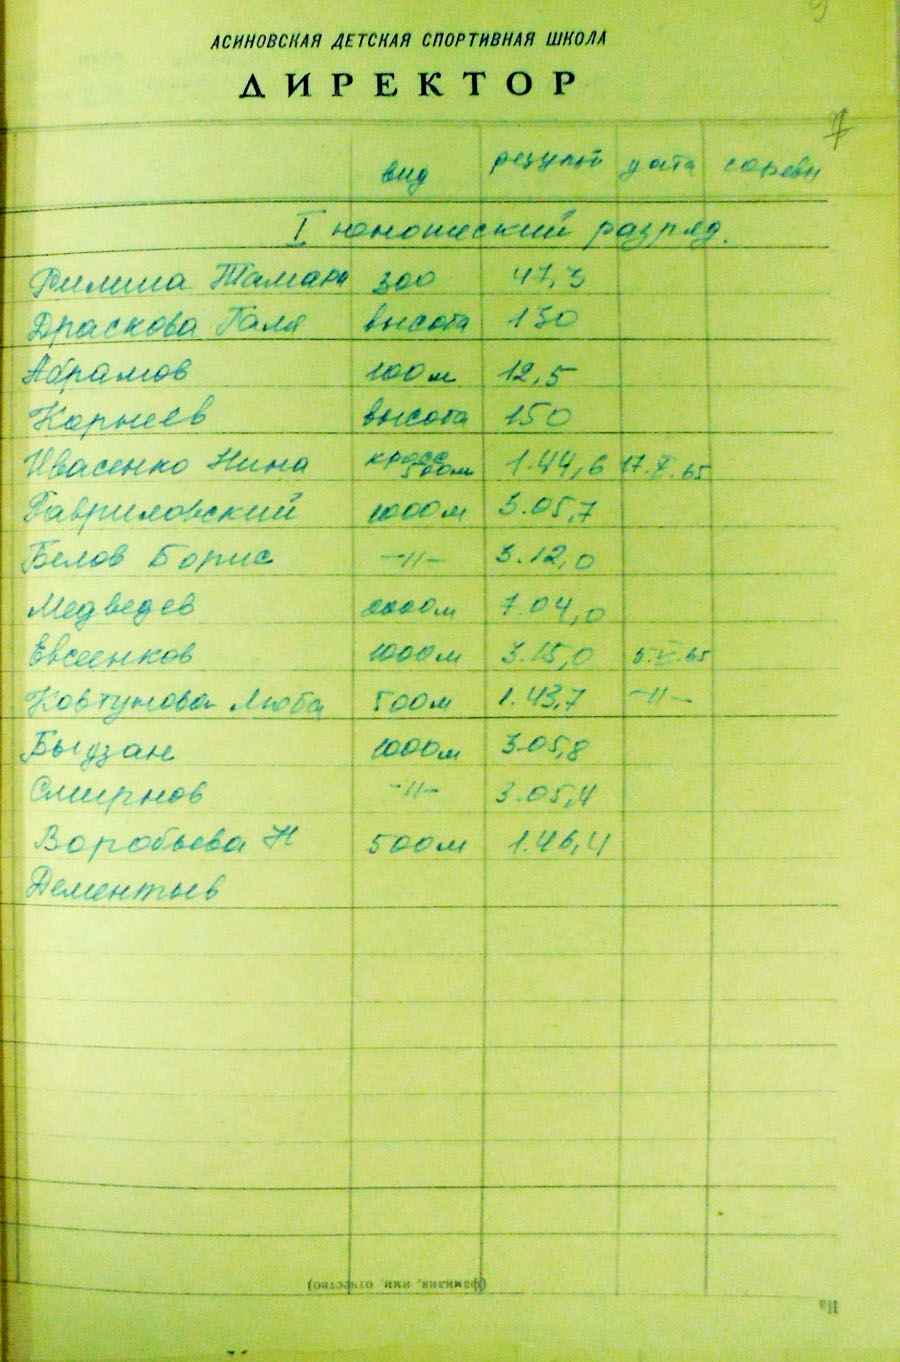 АСИНОВСКАЯ ДЕТСКАЯ СПОРТИВНАЯ ШКОЛА
ДИРЕКТОР
вид результ дата соревн
I юношеский разряд.
Филина Тамара 300 47,3
Драскова Галя высота 130
Абрамов 100м 12,5
Корнеев высота 150
Ивасенко Нина кросс 500м 1.44,6 17.X.65
Гавриловский 1000м 3.05,7
Белов Борис —"— 3.12,0
Медведев 2000м 7.04,0
Евсеенков 1000м 3.15,0 5.V.65
Ковтунова Люба 500м 1.43,7 —"—
1000м 3.05,8
Смирнов —"— 3.05,4
Воробьева Н 500м 1.46,4
Дементьев
(фамилия, имя, отчество)
На